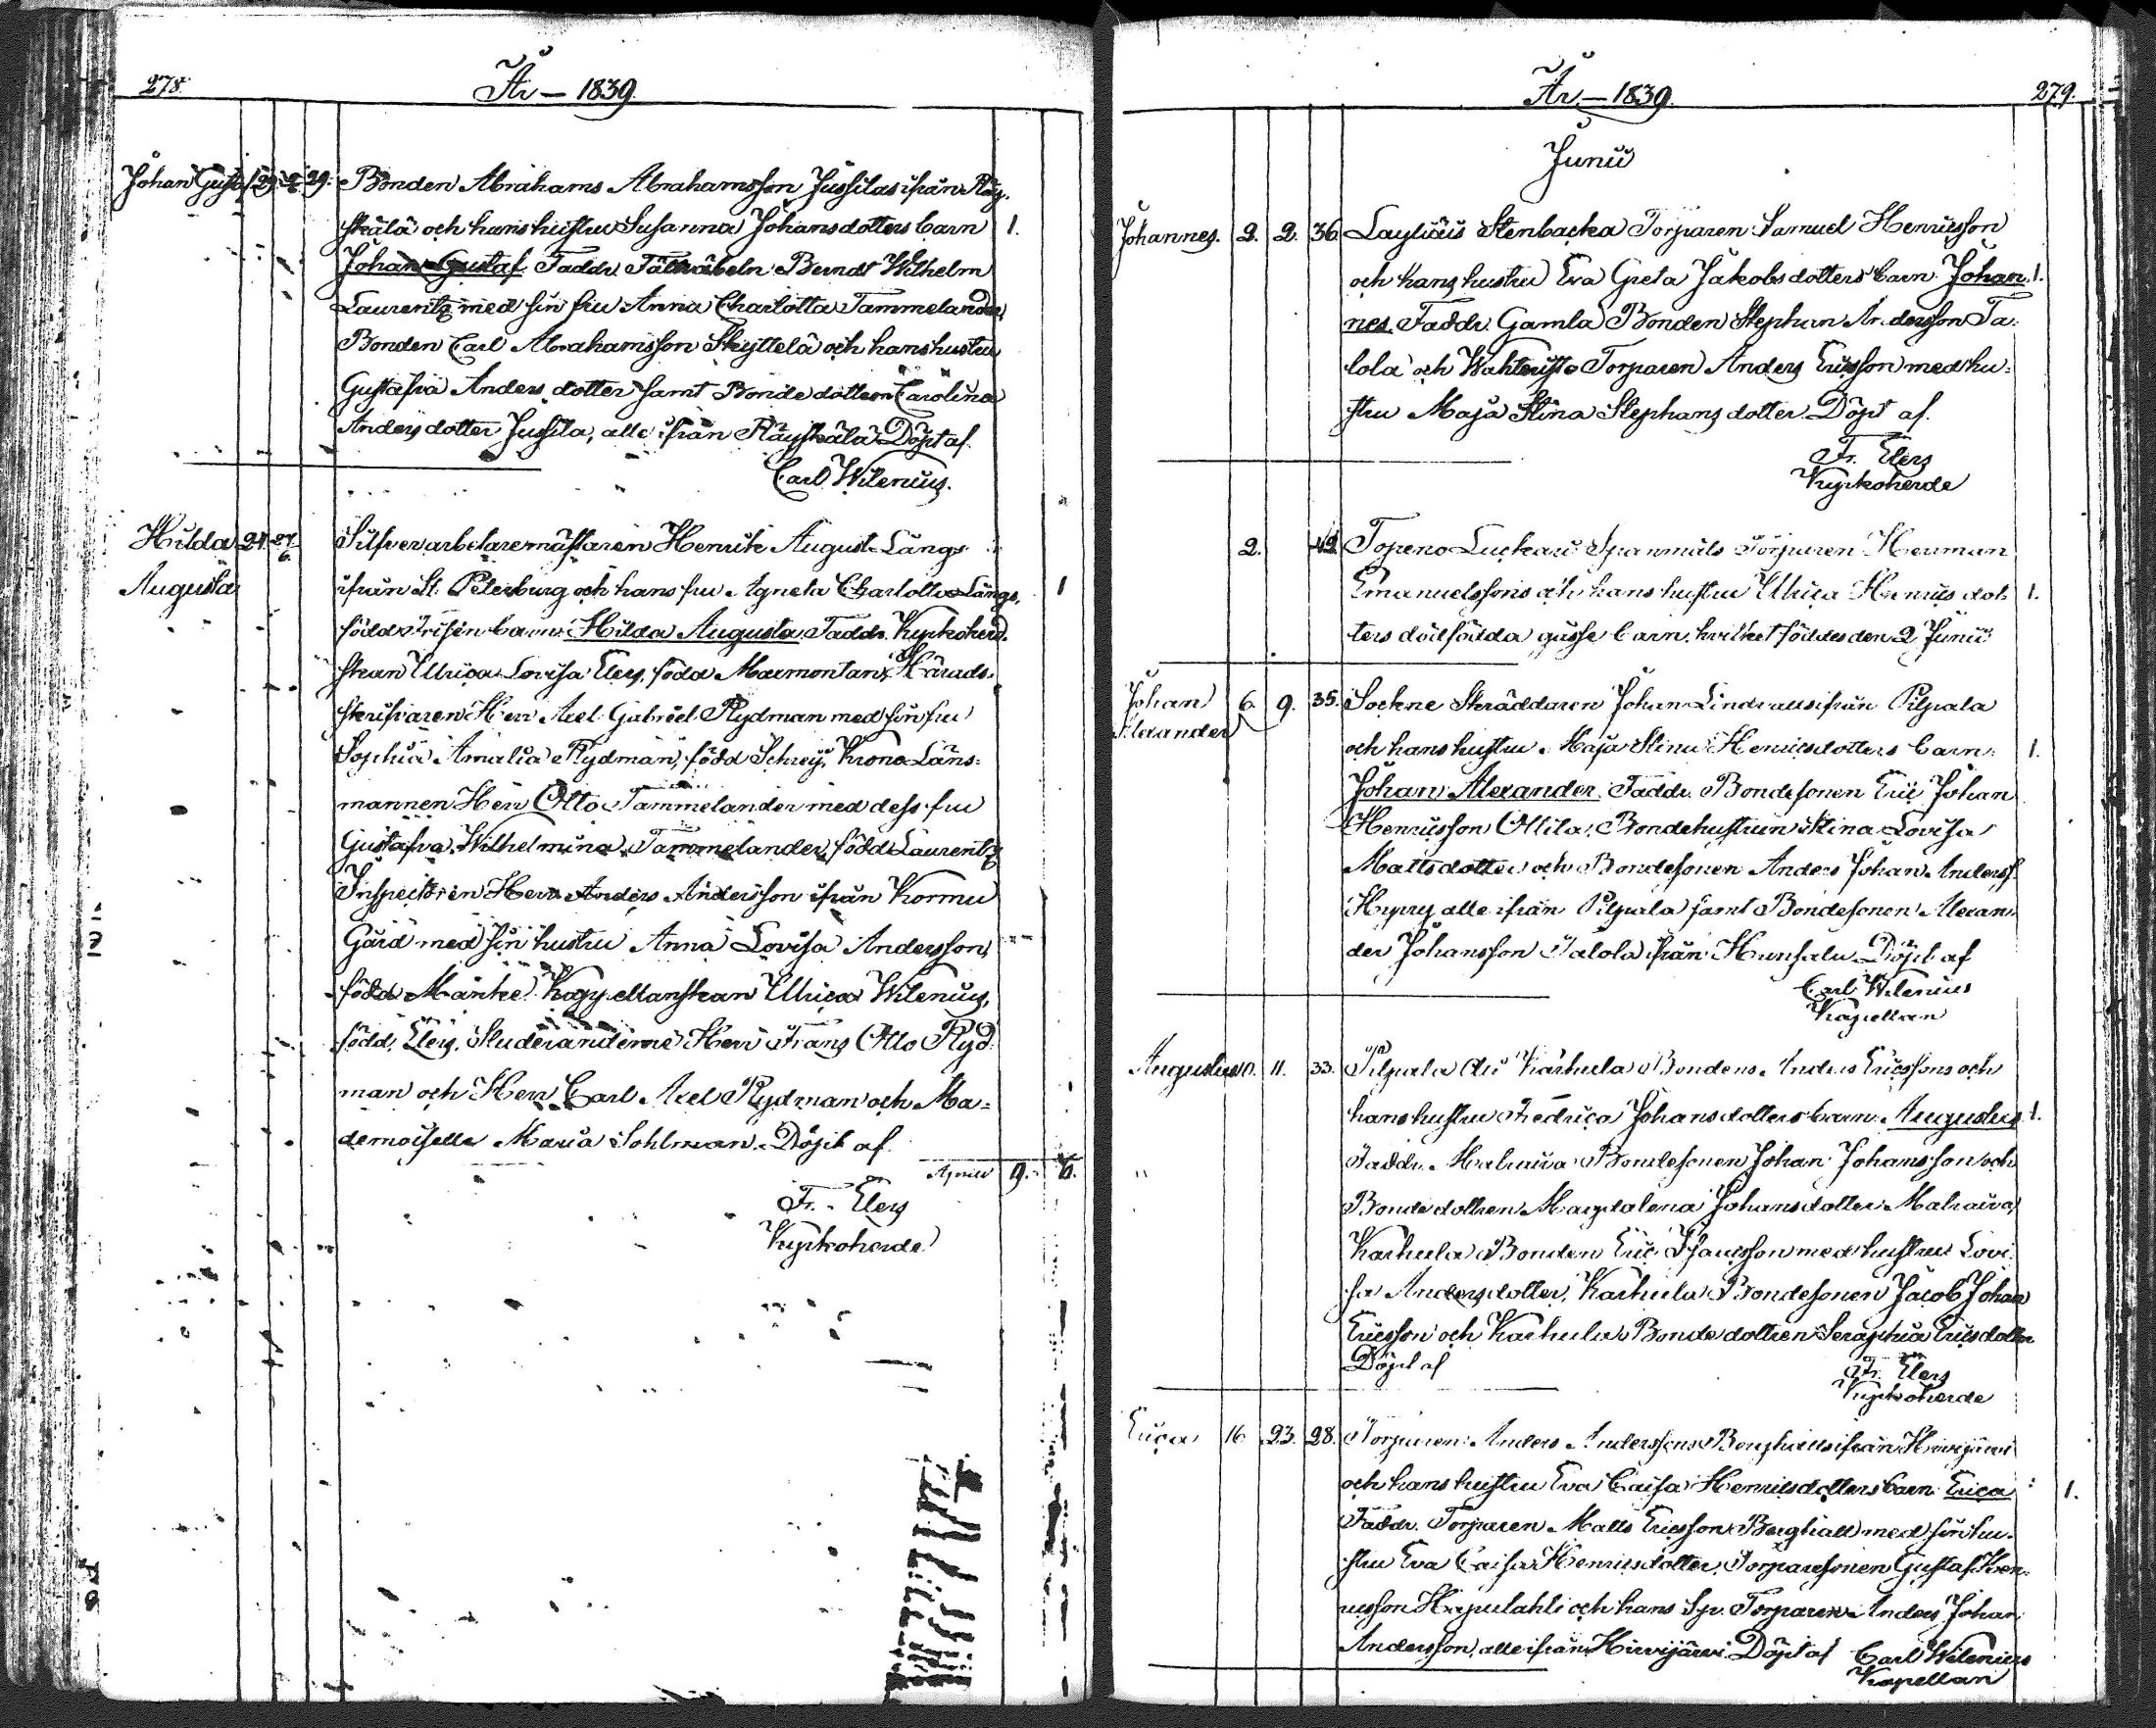 278.
År — 1839.
Johan Gustaf 29. 29. Bonden Abrahams Abrahamsson Jussilas ifrån Räy-
skälä och hans hustru Susanna Johansdotters barn 1.
Johan Gustaf. Faddr. Fältväbeln Berndt Wilhelm
Laurentz med sin fru Anna Charlotta Tammelander,
Bonden Carl Abrahamsson Skyttelä och hans hustru
Gustafva Anders dotter samt Bonde dottern Carolina
Anders dotter Jussila, alle ifrån Räyskälä. Döpt af
Carl Wilenius.
Hilda 24. 27/6. Silfverarbetaremästaren Henrik August Längs
Augusta ifrån St. Petersburg och hans fru Agneta Charlotta Längs, 1
född barn Hilda Augusta. Faddr. Kyrkoherd-
skan Ulrica Lovisa Elers, född Marmontan, Härads-
skrifvaren Herr Axel Gabriel Rydman med sin fru
Sophia Amalia Rydman, född Schrey, Krono Läns-
mannen Herr Otto Tammelander med dess fru
Gustafva Wilhelmina Tammelander, född Laurentz
Inspectoren Herr Anders Andersson ifrån Kormu
Gård med sin hustru Anna Lovisa Andersson,
född Kapellanskan Ulrica Wilenius,
född Elers, Studeranderne Herr Frans Otto Ryd-
man och Herr Carl Axel Rydman och Ma-
demoiselle Maria Sohlman. Döpt af
9. 6.
Fr. Elers
Kyrkoherde
År. — 1839.
279.
Junii
Johannes. 2. 2. 36. Stenbacka Torparen Samuel Henricsson
och hans hustru Eva Greta Jakobs dotters barn Johan- 1.
nes. Faddr. Gamla Bonden Stephan Andersson Ta-
lola och Torparen Anders Ericsson med hu-
stru Maja Stina Stephans dotter. Döpt af
Fr. Elers
Kyrkoherde
2. 42. Topeno Luckari Spanmåls Torparen Herman
Emanuelssons och hans hustru Ulrica Henrics dot- 1.
ters dödfödda gosse barn, hvilket föddes den 2 Junii
Johan 6. 9. 35. Sockne Skräddaren Johan Lindraus ifrån Pilpala
Alexander och hans hustru Maja Stina Henricsdotters barn 1.
Johan Alexander. Faddr. Bondesonen Eric Johan
Henricsson Ollila, Bondehustrun Stina Lovisa
Mattsdotter och Bondesonen Anders Johan Anderss.
Hyyry alle ifrån Pilpala samt Bondesonen Alexan-
der Johansson Talola ifrån Hunsala. Döpt af
Carl Wilenius
Kapellan
Augustus 10. 11. 33. Pilpala Karhula Bondens Anders Ericssons och
hans hustru Fredrica Johans dotters barn Augustus 1.
Faddr. Bondesonen Johan Johansson och
Bonde dottren Magdalena Johansdotter
Karhula Bonden Eric med hustru Lovi-
sa Andersdotter, Karhula Bondesonen Jacob Johan
Ericsson och Karhula Bonde dottren Seraphia Ericsdotter
Döpt af
Fr. Elers
Kyrkoherde
Erica 16. 23. 28. Torparen Anders Anderssons Berghäll ifrån Hirvijärvi
och hans hustru Eva Caisa Henricsdotters barn Erica 1.
Faddr. Torparen Matts Ericsson Berghäll med sin hu-
stru Eva Caisa Henricsdotter, Torparesonen Gustaf Hen-
ricsson och hans Sys. Torparen Anders Johan
Andersson, alle ifrån Hirvijärvi. Döpt af Carl Wilenius
Kapellan